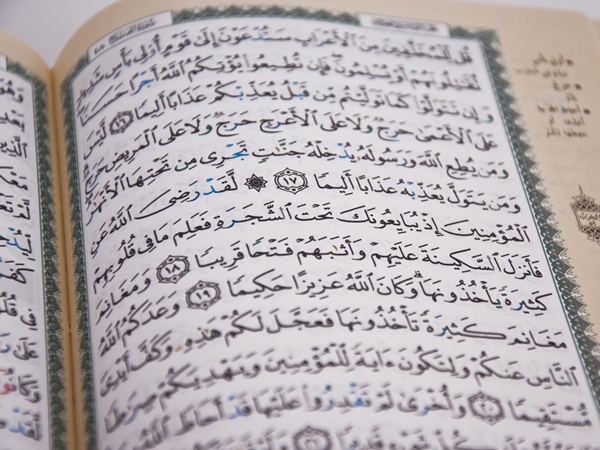 سُورَةُ الفَتْحِ ٤٨
قُل لِّلْمُخَلَّفِينَ مِنَ ٱلْأَعْرَابِ سَتُدْعَوْنَ إِلَىٰ قَوْمٍ أُو۟لِى بَأْسٍ شَدِيدٍ
تُقَٰتِلُونَهُمْ أَوْ يُسْلِمُونَ ۖ فَإِن تُطِيعُوا۟ يُؤْتِكُمُ ٱللَّهُ أَجْرًا حَسَنًا
وَإِن تَتَوَلَّوْا۟ كَمَا تَوَلَّيْتُم مِّن قَبْلُ يُعَذِّبْكُمْ عَذَابًا أَلِيمًا ١٦ لَّيْسَ
عَلَى ٱلْأَعْمَىٰ حَرَجٌ وَلَا عَلَى ٱلْأَعْرَجِ حَرَجٌ وَلَا عَلَى ٱلْمَرِيضِ حَرَجٌ
وَمَن يُطِعِ ٱللَّهَ وَرَسُولَهُۥ يُدْخِلْهُ جَنَّٰتٍ تَجْرِى مِن تَحْتِهَا ٱلْأَنْهَٰرُ
وَمَن يَتَوَلَّ يُعَذِّبْهُ عَذَابًا أَلِيمًا ١٧ ۞ لَّقَدْ رَضِىَ ٱللَّهُ عَنِ
ٱلْمُؤْمِنِينَ إِذْ يُبَايِعُونَكَ تَحْتَ ٱلشَّجَرَةِ فَعَلِمَ مَا فِى قُلُوبِهِمْ
فَأَنزَلَ ٱلسَّكِينَةَ عَلَيْهِمْ وَأَثَٰبَهُمْ فَتْحًا قَرِيبًا ١٨ وَمَغَانِمَ
كَثِيرَةً يَأْخُذُونَهَا ۗ وَكَانَ ٱللَّهُ عَزِيزًا حَكِيمًا ١٩ وَعَدَكُمُ ٱللَّهُ
مَغَانِمَ كَثِيرَةً تَأْخُذُونَهَا فَعَجَّلَ لَكُمْ هَٰذِهِۦ وَكَفَّ أَيْدِىَ
ٱلنَّاسِ عَنكُمْ وَلِتَكُونَ ءَايَةً لِّلْمُؤْمِنِينَ وَيَهْدِيَكُمْ صِرَٰطًا
مُّسْتَقِيمًا ٢٠ وَأُخْرَىٰ لَمْ تَقْدِرُوا۟ عَلَيْهَا قَدْ أَحَاطَ ٱللَّهُ